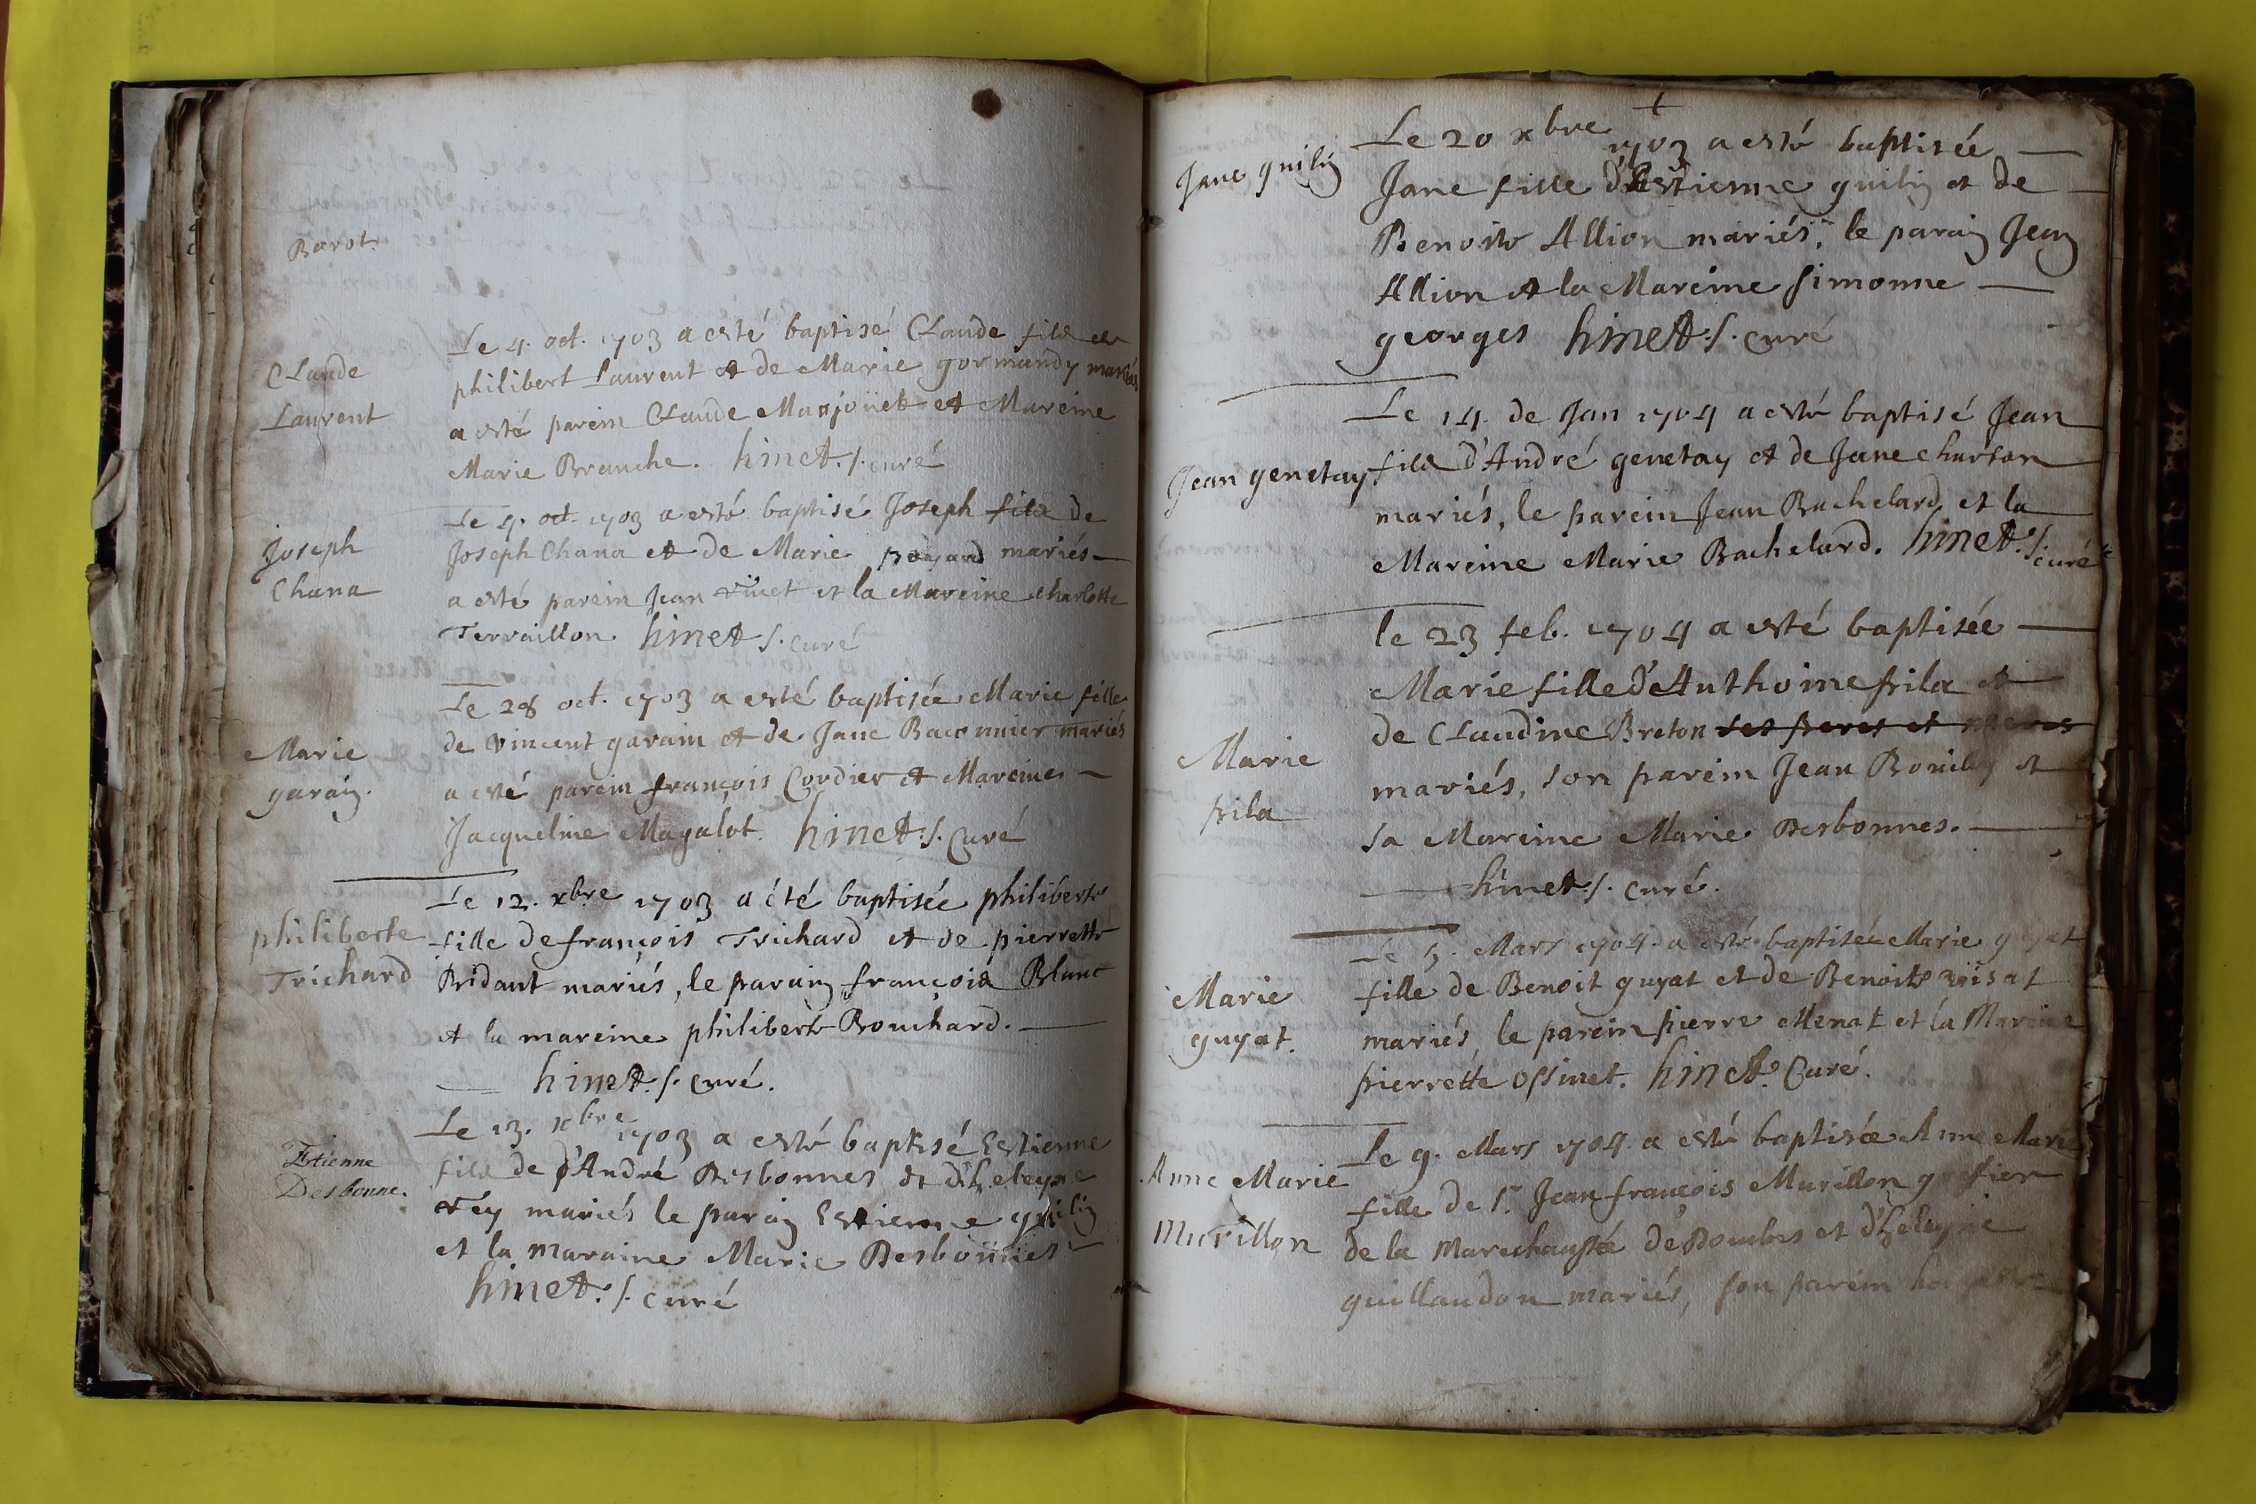 Barot.
Claude
Laurent
Le 4. oct. 1703 a esté baptisé Claude fils de
philibert Laurent et de Marie gormandy mariés
a esté parein Claude Marjoüet et Mareine
Marie Branche. hinet. s. curé
Joseph
Chana
Le 4. oct. 1703 a esté baptisé Joseph fils de
Joseph Chana et de Marie mariés
a esté parein Jean et la Mareine charlotte
Tervaillon. hinet s. curé
Marie
garain.
Le 28 oct. 1703 a esté baptisée Marie fille
de vincent garain et de Jane Baconnier mariés
a esté parein françois Cordier et Mareine
Jacqueline Magalot. hinet s. Curé
philiberte
Trichard
Le 12. xbre 1703 a été baptisée philiberte
fille de françois Trichard et de pierrette
Bridant mariés, le parain françois Blanc
et la mareine philiberte Bouchard.
hinet. s. curé.
Etienne
Desbonne.
Le 13. xbre 1703 a esté baptisé Estienne
fils de d'André Desbonnes et d'heleyne
Tey mariés le parain Estienne guilin
et la maraine Marie Desbonnes
hinet. s. curé
Jane guilin
Le 20 xbre 1703 a esté baptisée
Jane fille d'Estienne guilin et de
Benoite Allion mariés, le parain Jean
Allion et la Mareine simonne
georges hinet. s. curé
Jean genetay
Le 14. de Jan 1704 a esté baptisé Jean
fils d'André genetay et de Jane charson
mariés, le parein Jean Bachelard et la
Mareine Marie Bachelard. hinet. s. curé
Marie
frila
le 23 feb. 1704 a esté baptisée
Marie fille d'Anthoine frila et
de Claudine Breton ses peres et meres
mariés, son parein Jean et
sa Mareine Marie Desbonnes.
hinet. s. curé.
Marie
guyat.
Le 5. Mars 1704. a esté baptisée Marie guyat
fille de Benoit guyat et de Benoite
mariés le parein pierre Menat et la Mareine
pierrette ossinet. hinet. Curé.
Anne Marie
Murillon
Le 9. Mars 1704. a esté baptisée Anne Marie
fille de Sr. Jean françois Murillon greffier
de la Marechaussée de Dombes et d'heleyne
guillaudon mariés, son parein